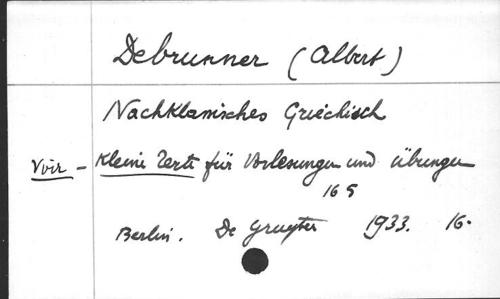 Debrunner (Albert)
Nachklassisches Griechisch
Voir - Kleine Texte für Vorlesungen und Übungen
165
Berlin. De Gruyter 1933. 16.